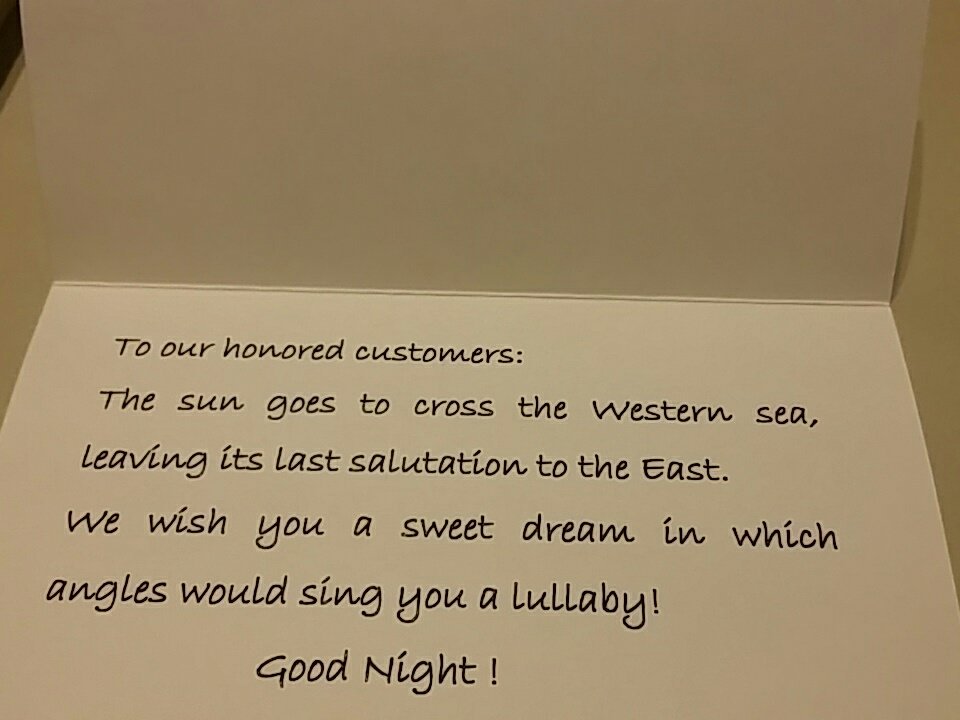 To our honored customers:
The sun goes to cross the Western sea,
leaving its last salutation to the East.
We wish you a sweet dream in which
angles would sing you a lullaby!
Good Night !